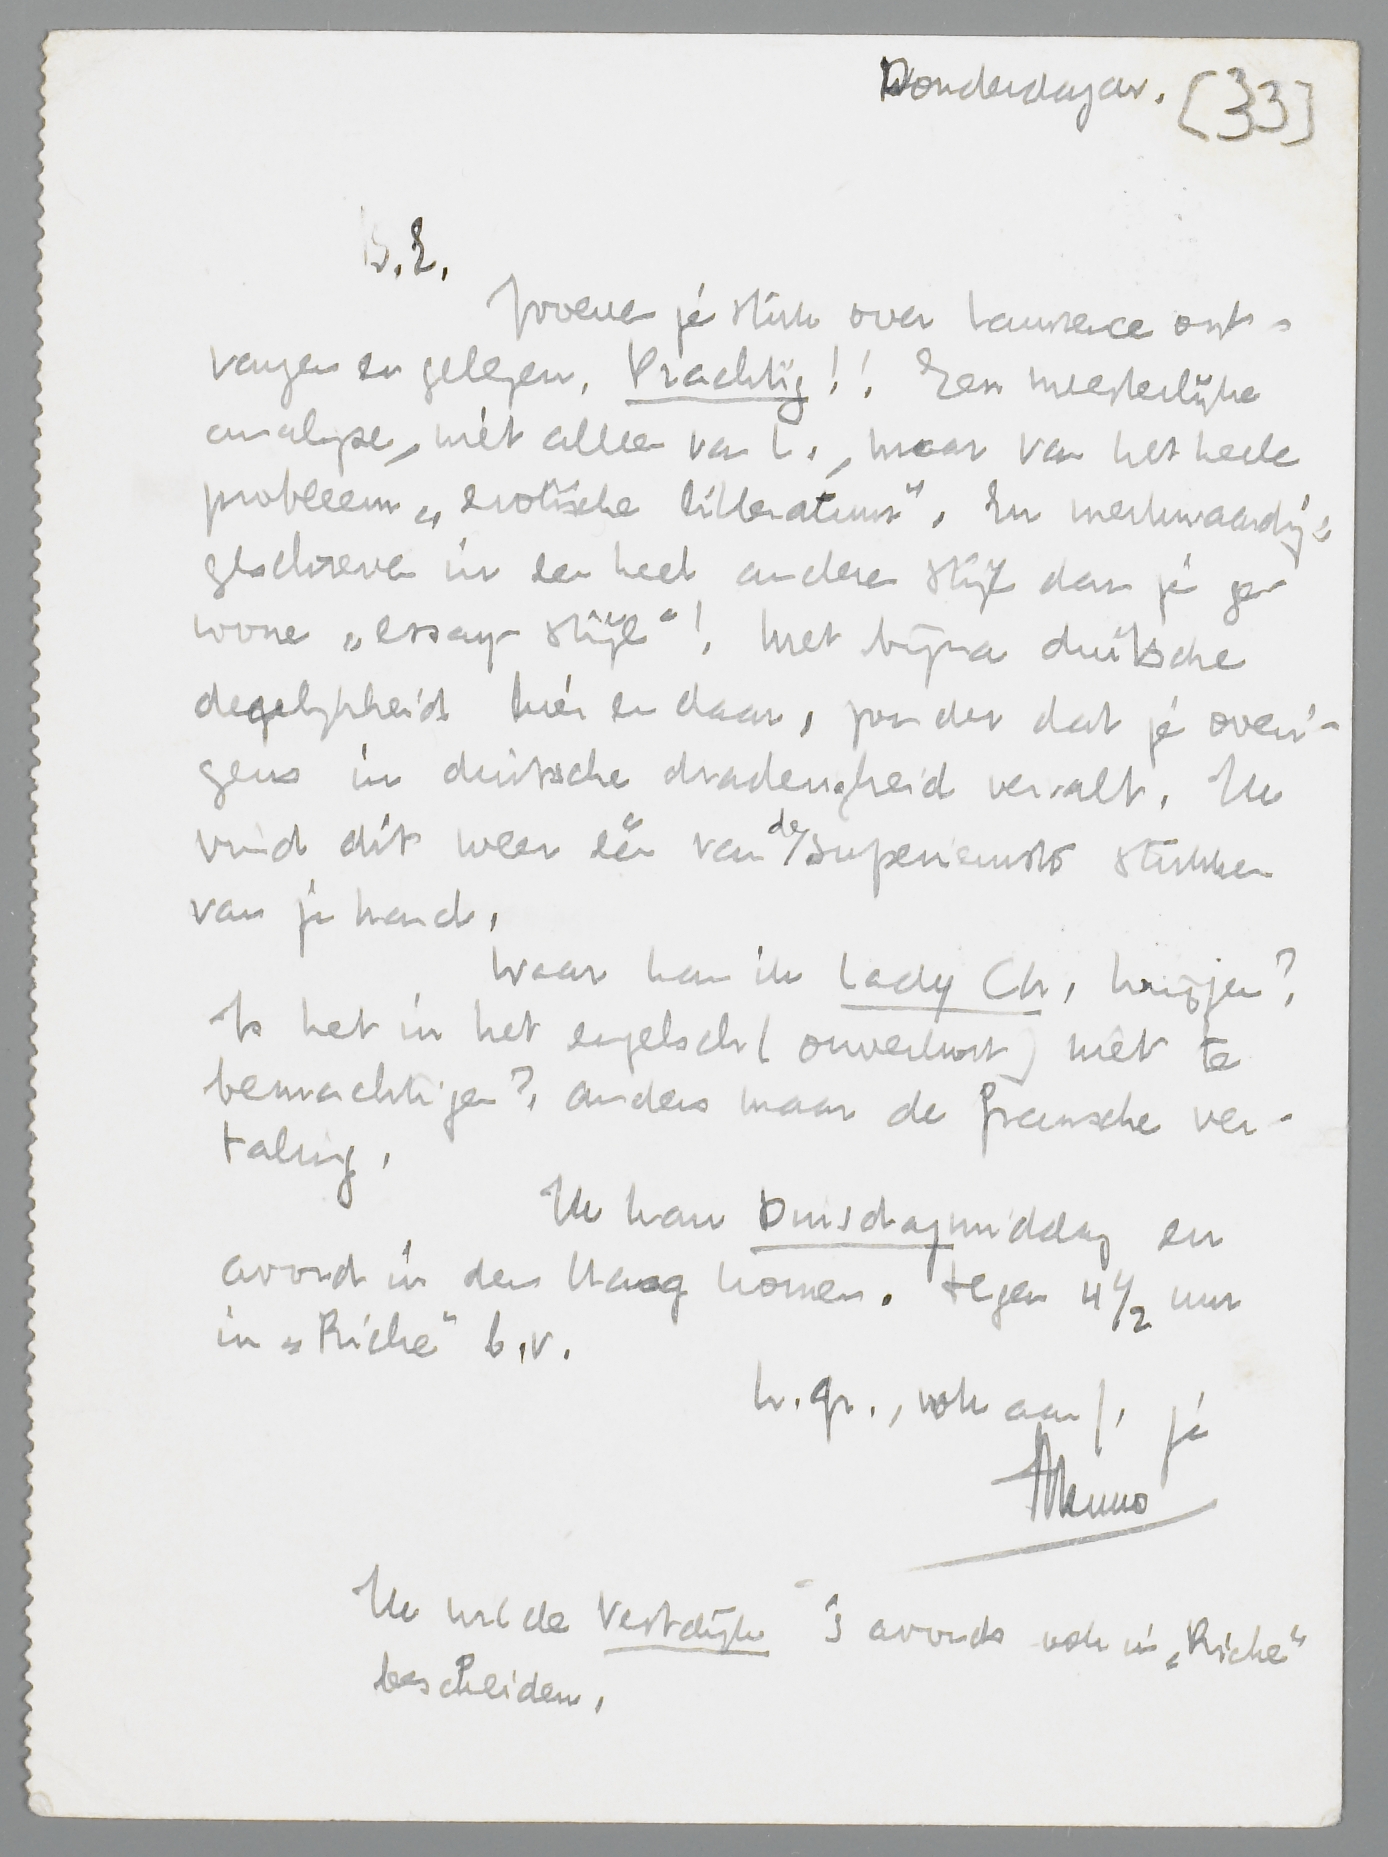 Donderdagav. [33]
B.E.
Zooeven je stuk over Lawrence ont-
vangen en gelezen. Prachtig!! Een meesterlijke
analyse, niet alleen van L., maar van het heele
probleem „erotische litteratuur". En merkwaardig:
geschreven in een heel andere stijl dan je ge-
wone „essay-stijl"! Met bijna duitsche
degelijkheid hier en daar, zonder dat je overi-
gens in duitsche draderigheid vervalt. Ik
vind dit weer één van de superieurste stukken
van je hand.
Waar kan ik Lady Ch. krijgen?
Is het in het engelsch (onverkort) niet te
bemachtigen? Anders maar de fransche ver-
taling.
Ik kan Dinsdagmiddag en
avond in den Haag komen. Tegen 4 1/2 uur
in „Riche" b.v.
h.gr., ook aan J. je
Menno
Ik wilde Vestdijk 's avonds ook in „Riche"
bescheiden.